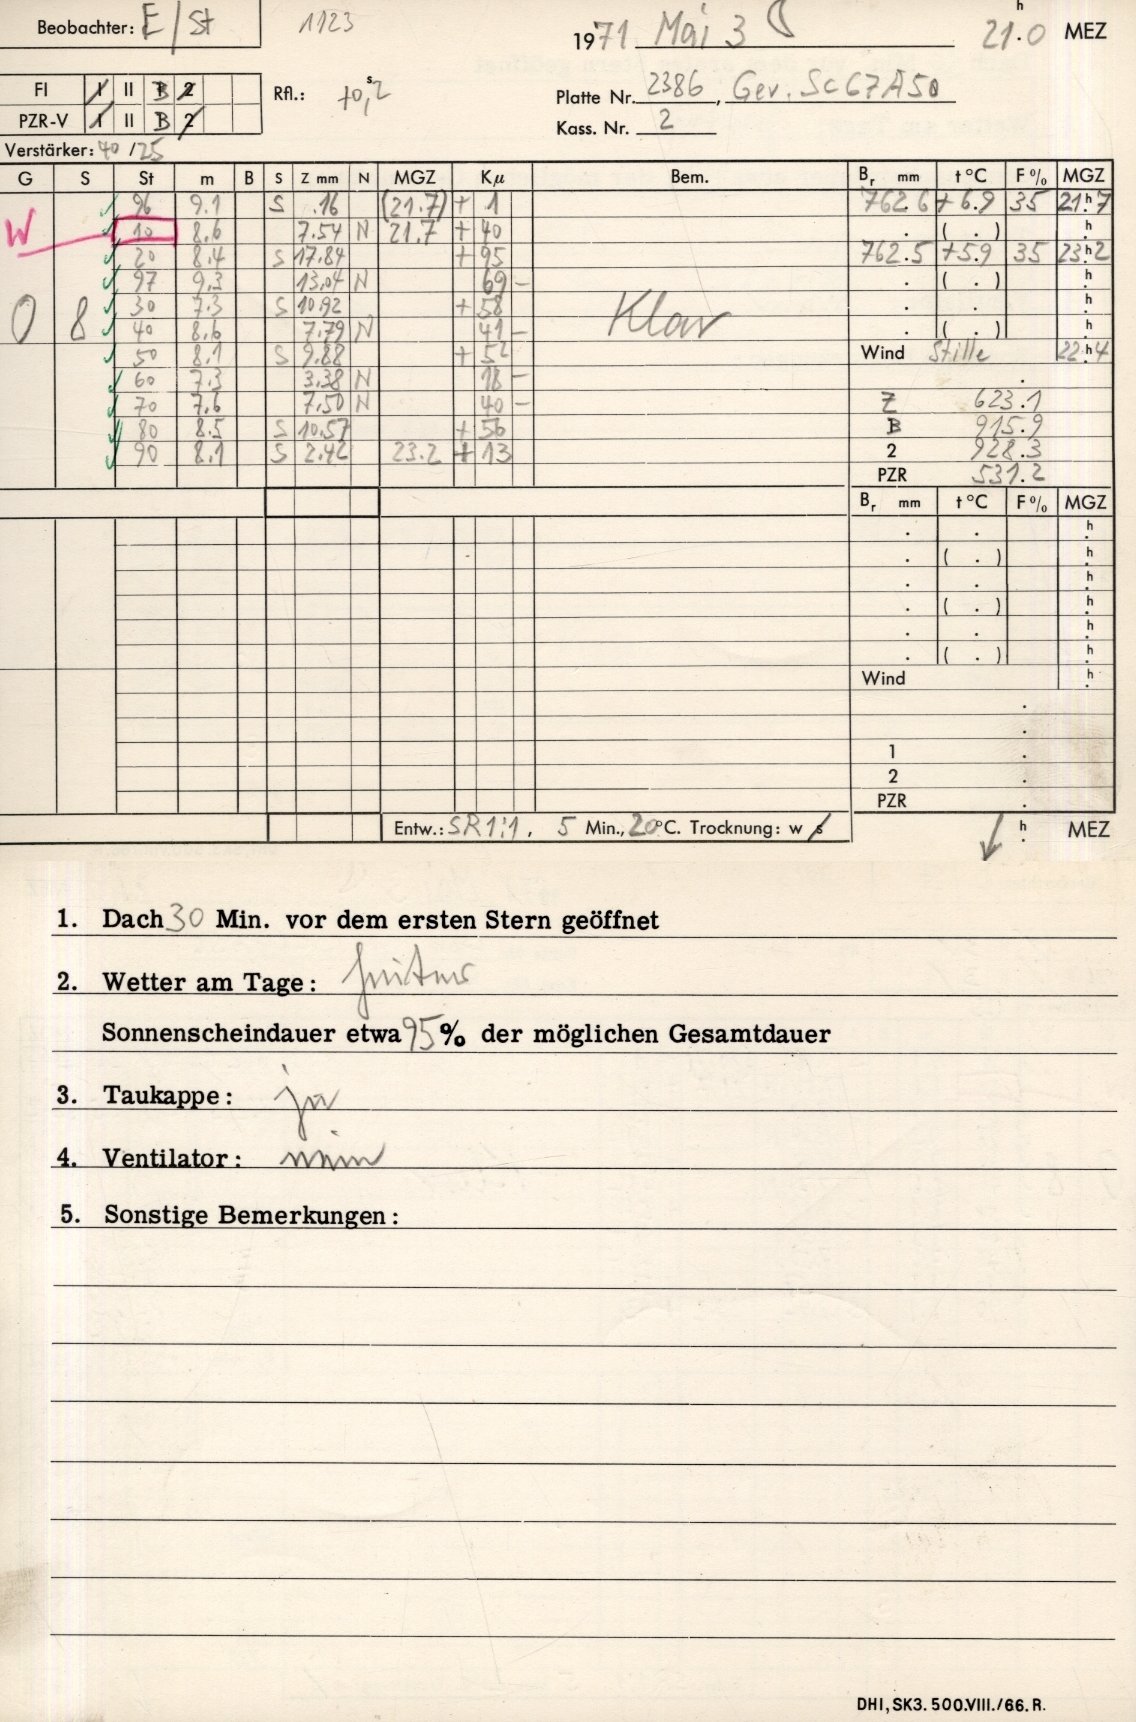 Beobachter: E/St 1123 1971 Mai 3 21.0 h MEZ
FI I II B 2 Rfl.: +0,2 s Platte Nr. 2386, Gev. Sc67A50
PZR-V I II B 2 Kass. Nr. 2
Verstärker: 40 /25
G S St m B S Z mm N MGZ Kμ Bem. Br mm t °C F % MGZ
96 9.1 S .16 (21.7) + 1 762.6 +6.9 35 21h7
W 10 8.6 7.54 N 21.7 + 40 . ( . ) h
20 8.4 S 17.84 + 95 762.5 +5.9 35 23h2
97 9.3 13.04 N 69 - . ( . ) h
O 8 30 7.3 S 10.92 + 58 Klar . . h
40 8.6 7.79 N 41 - . ( . ) h
50 8.1 S 9.88 + 52 Wind Stille 22h4
60 7.3 3.38 N 18 - .
70 7.6 7.50 N 40 - Z 623.1
80 8.5 S 10.57 + 56 B 915.9
90 8.1 S 2.42 23.2 + 13 2 928.3
PZR 531.2
Br mm t °C F % MGZ
. . h
. ( . ) h
. . h
. ( . ) h
. . h
. ( . ) h
Wind h
.
.
1 .
2 .
PZR .
Entw.: SR1:1, 5 Min., 20 °C. Trocknung: w s h MEZ
1. Dach 30 Min. vor dem ersten Stern geöffnet
2. Wetter am Tage: heiter
Sonnenscheindauer etwa 95 % der möglichen Gesamtdauer
3. Taukappe: ja
4. Ventilator: nein
5. Sonstige Bemerkungen:
DHI, SK3. 500.VIII./66. R.